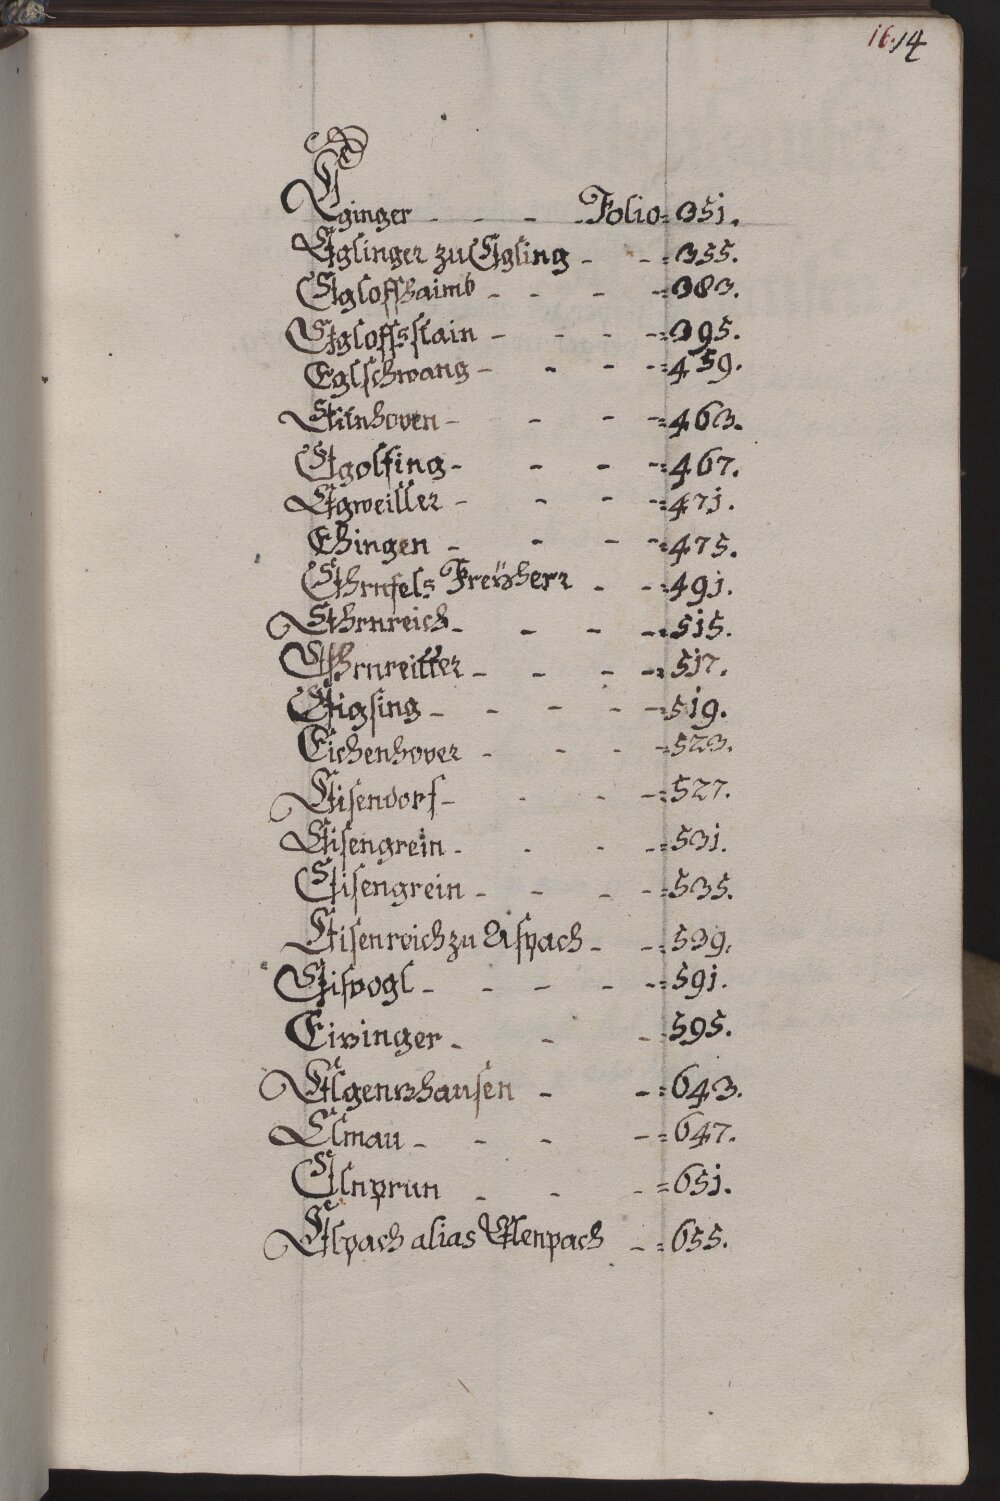 16.14
Eginger - - - Folio= 351.
Eglinger zu Egling - - = 355.
Egloffhaimb - - - -= 383.
Egloffsstain - - - -= 395.
Eglschwang - - - -= 459.
Eilnhoven - - - -= 463.
Egolfing - - - -= 467.
Egweiller - - - -= 471.
Ehingen - - - -= 475.
Ehrnfels Freÿherr - -= 491.
Ehrnreich - - - -= 515.
Ehrnreitter - - - -= 517.
Eigsing - - - - -= 519.
Eichenhover - - - -= 523.
Eisendorf - - - -= 527.
Eisengrein - - - -= 531.
Eisengrein - - - -= 535.
Eisenreich zu Aspach - -= 539.
Eisvogl - - - - -= 591.
Eizinger - - -= 595.
Elgenzhausen - -= 643.
Elmau - - - -= 647.
Elnprun - - -= 651.
Elpach alias Ellenpach -= 655.